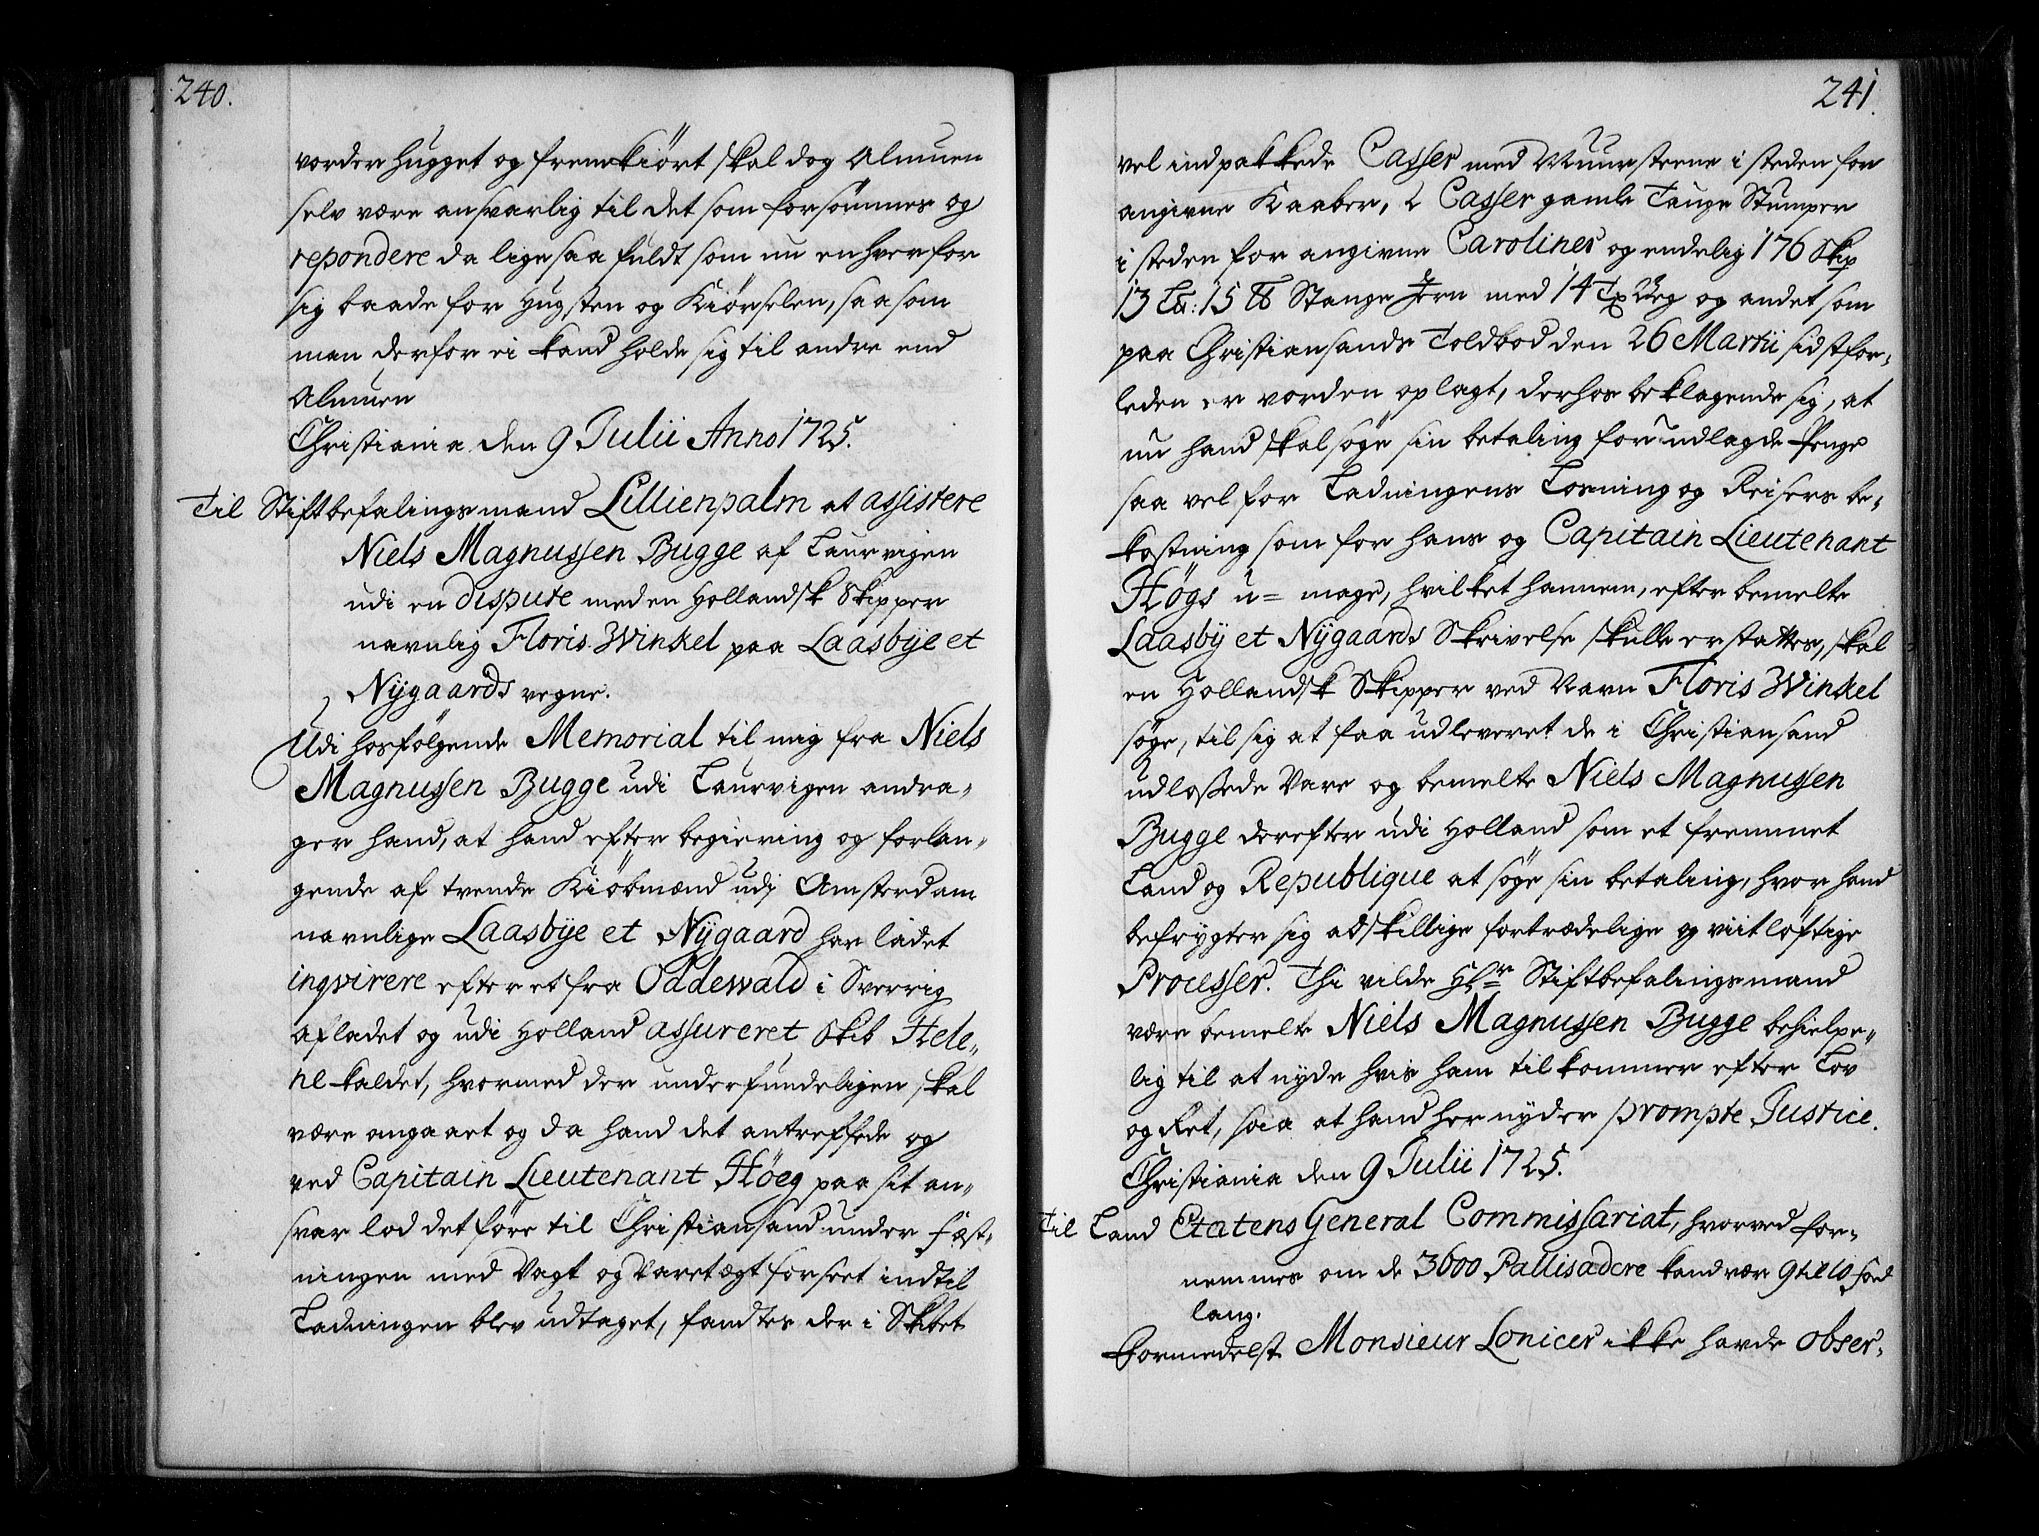 240.
vorder hugget og fremkiört skal dog Almuen
selv være ansvarlig til det som forsömmes og
repondere da ligesaa fuldt som nu enhver for
sig baade for Hugsten og Kiörselen, saasom
man derfor ei kand holde sig til andre end
Almuen
Christiania den 9 Julii Anno 1725.
Til Stiftbefalingsmand Lillienpalm at assistere
Niels Magnussen Bugge af Laurvigen
udi en dispute med en Hollandsk Skipper
navnlig Floris Winkel paa Laasbye et
Nygaards vegne.
Udi hosfølgende Memorial til mig fra Niels
Magnussen Bugge udi Laurvigen andra-
ger hand, at hand efter begiering og forlan-
gende af tvende Kiöbmænd udj Amsterdam
navnlige Laasbye et Nygaard har ladet
inqvirere efter et fra Oddewald i Sverrig
afladet og udi Holland assureret Skib Hele-
ne kaldet, hvormed der underfundeligen skal
være omgaaet og da hand det antreffede og
ved Capitain Lieutenant Höeg paa sit an-
svar lod det före til Christiansand under Fæst-
ningen med Vagt og Varetægt forseet indtil
Ladningen blev udtaget, fandtes der i Skibet
241
vel indpakkede Casser med Muursteene i steden for
angivne Kaaber, 2 Casser gamle Tauge Stumper
i steden for angivne Carolines og endelig 176 Skip
13 L: 15 ℔ Stange Jern med 14 Beg og andet som
paa Christiansands Toldbod den 26 Martii sidstfor-
leden er vorden oplagt, derhos beklagende sig, at
nu hand skal söge sin betaling for udlagde Penge
saa vel for Ladningens Losning og Reisers be-
kostning som for hans og Capitain Lieutenant
Högs u= mage, hvilket hannem, efter bemelte
Laasby et Nygaards Skrivelse skulle erstattes, skal
en Hollandsk Skipper ved Navn Floris Winkel
söge, til sig at faa udleveret de i Christiansand
udlossede Vare og bemelte Niels Magnussen
Bugge derefter udi Holland som et fremmet
Land og Republique at söge sin betaling, hvor hand
befrygter sig adskillige fortrædelige og viitløftige
Processer. Thi vilde Hr Stiftbefalingsmand
være bemelte Niels Magnussen Bugge behielpe-
lig til at nyde hvis ham tilkommer efter Lov
og Ret, saa at hand her nyder prompte Justice.
Christiania den 9 Julii 1725.
Til Land Etatens General Commissariat, hvorved for-
nemmes om de 3600 Pallisadere kand vær 9 til 10 fod
lang.
Formedelst Monsieur Lonicer ikke havde obser-